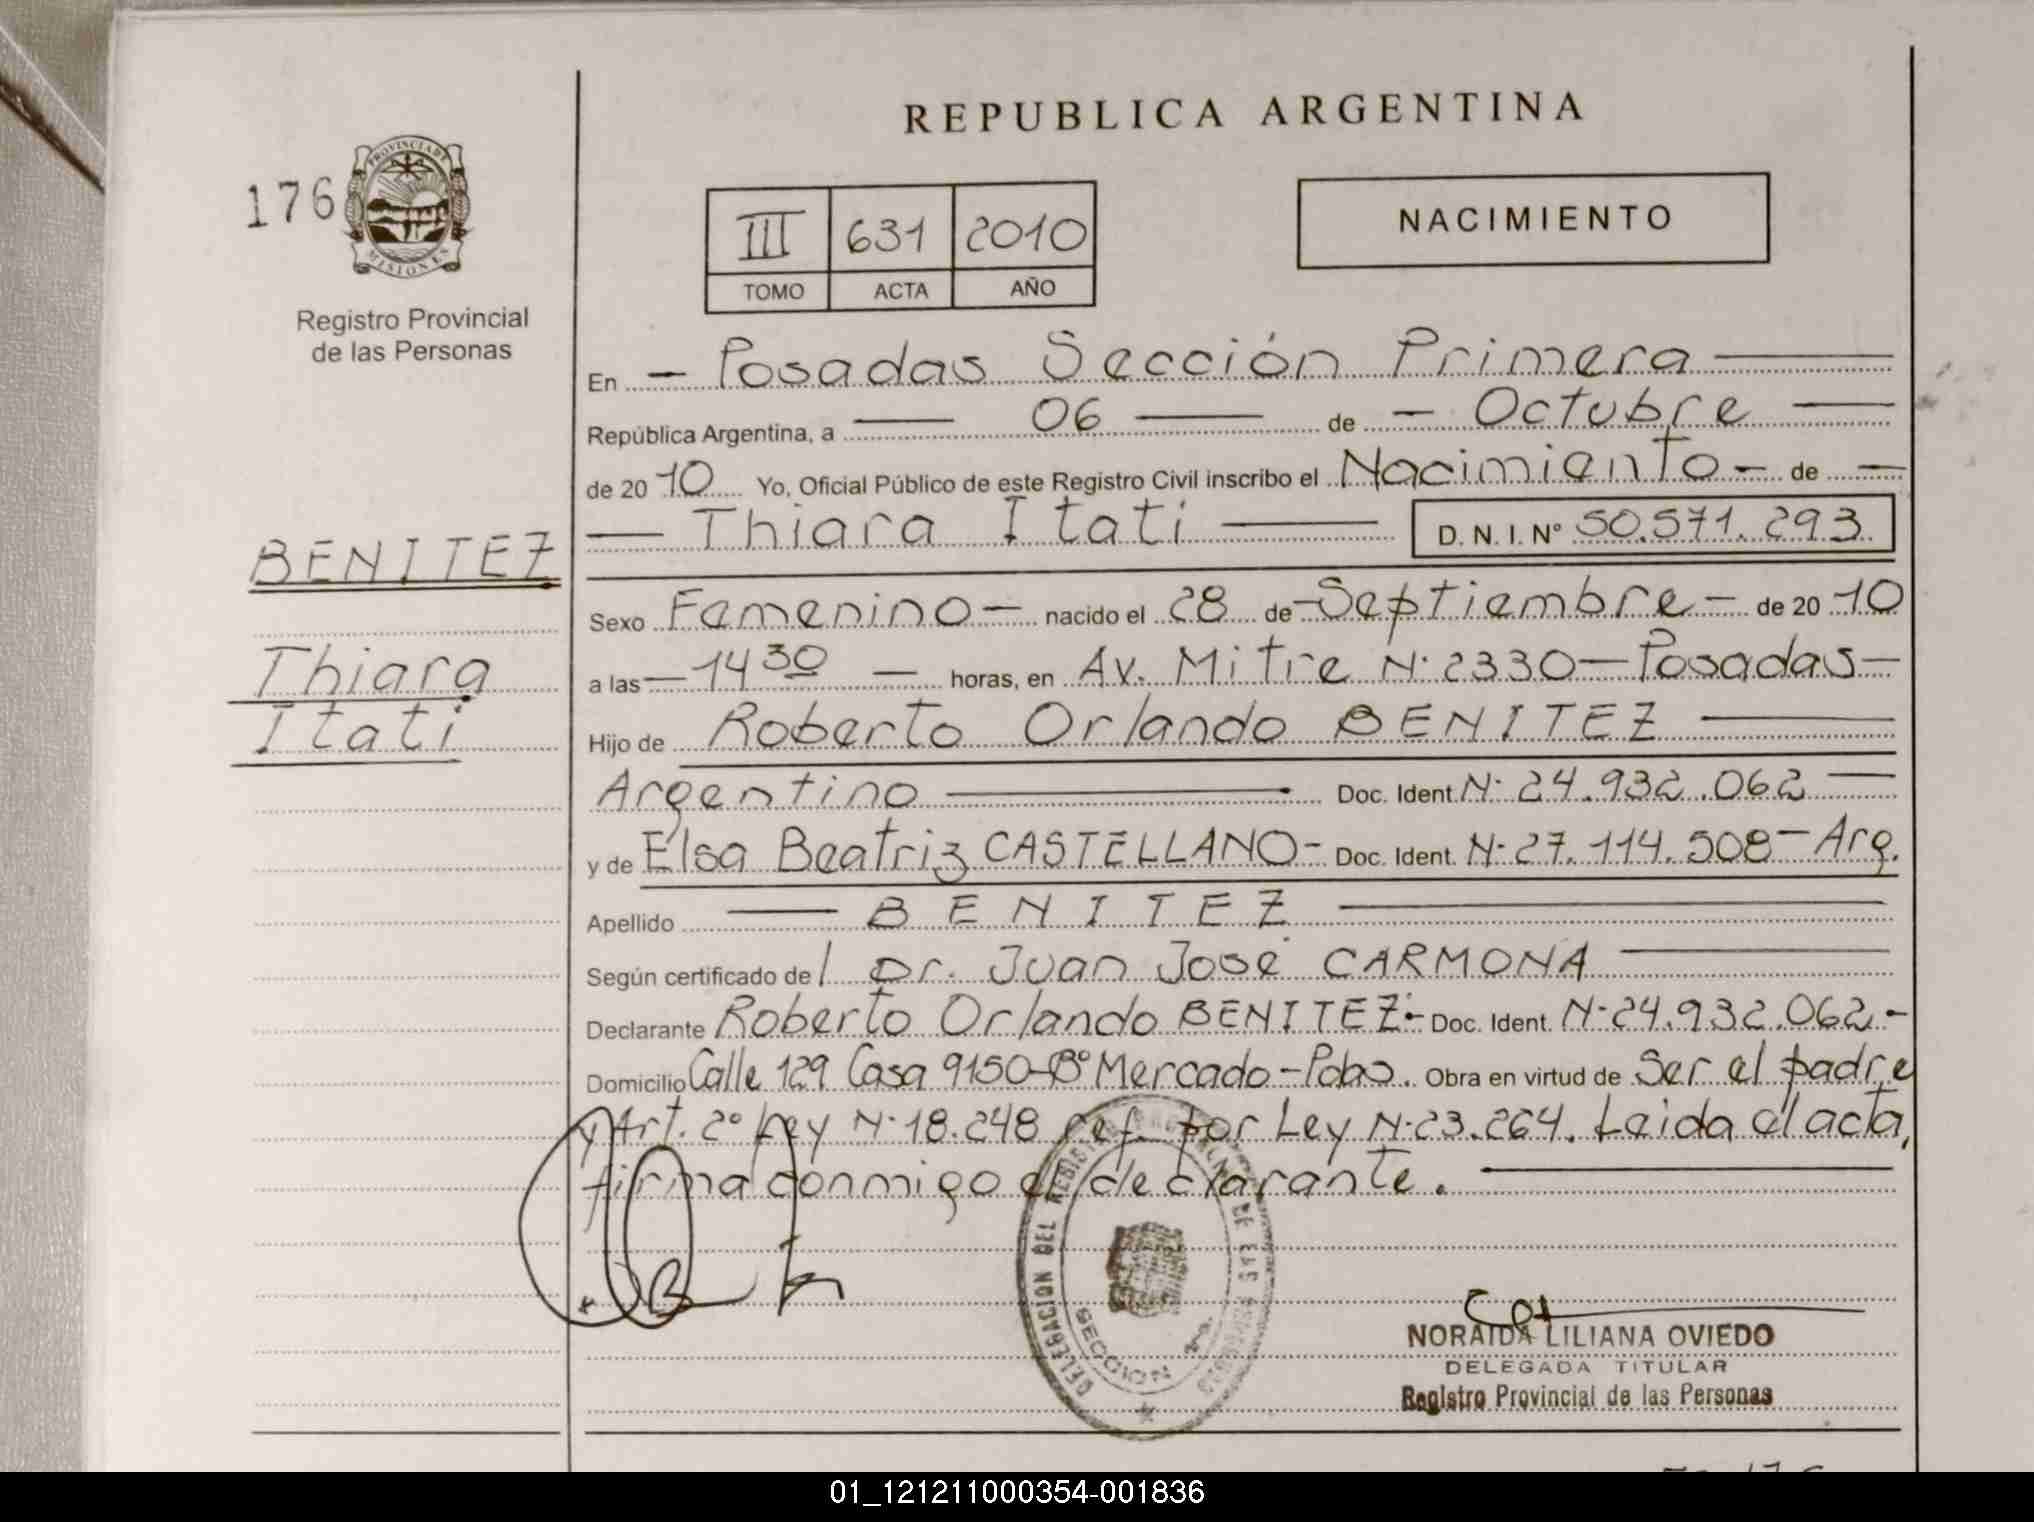 REPUBLICA ARGENTINA
176
PROVINCIA DE
MISIONES
Registro Provincial
de las Personas
III 631 2010
TOMO ACTA AÑO
NACIMIENTO
En - Posadas Sección Primera
República Argentina, a 06 de - Octubre
de 2010 Yo, Oficial Público de este Registro Civil inscribo el Nacimiento - de -
Thiara Itati D. N. I. Nº 50.571.293
BENITEZ
Thiara
Itati
Sexo Femenino - nacido el 28 de - Septiembre - de 2010
a las - 14 30 - horas, en Av. Mitre N· 2330 - Posadas -
Hijo de Roberto Orlando BENITEZ
Argentino Doc. Ident. N· 24.932.062
y de Elsa Beatriz CASTELLANO - Doc. Ident. N· 27.114.508 - Arg.
Apellido BENITEZ
Según certificado del Dr. Juan José CARMONA
Declarante Roberto Orlando BENITEZ - Doc. Ident. N· 24.932.062 -
Domicilio Calle 129 Casa 9150 - Bº Mercado - Pdas. Obra en virtud de Ser el padre
y Art. 2º Ley N· 18.248 ref. por Ley N· 23.264. Leida el acta,
firma conmigo el declarante.
DELEGACION DEL REGISTRO PROVINCIAL DE LAS PERSONAS
SECCION 1ra.
NORAIDA LILIANA OVIEDO
DELEGADA TITULAR
Registro Provincial de las Personas
01_121211000354-001836